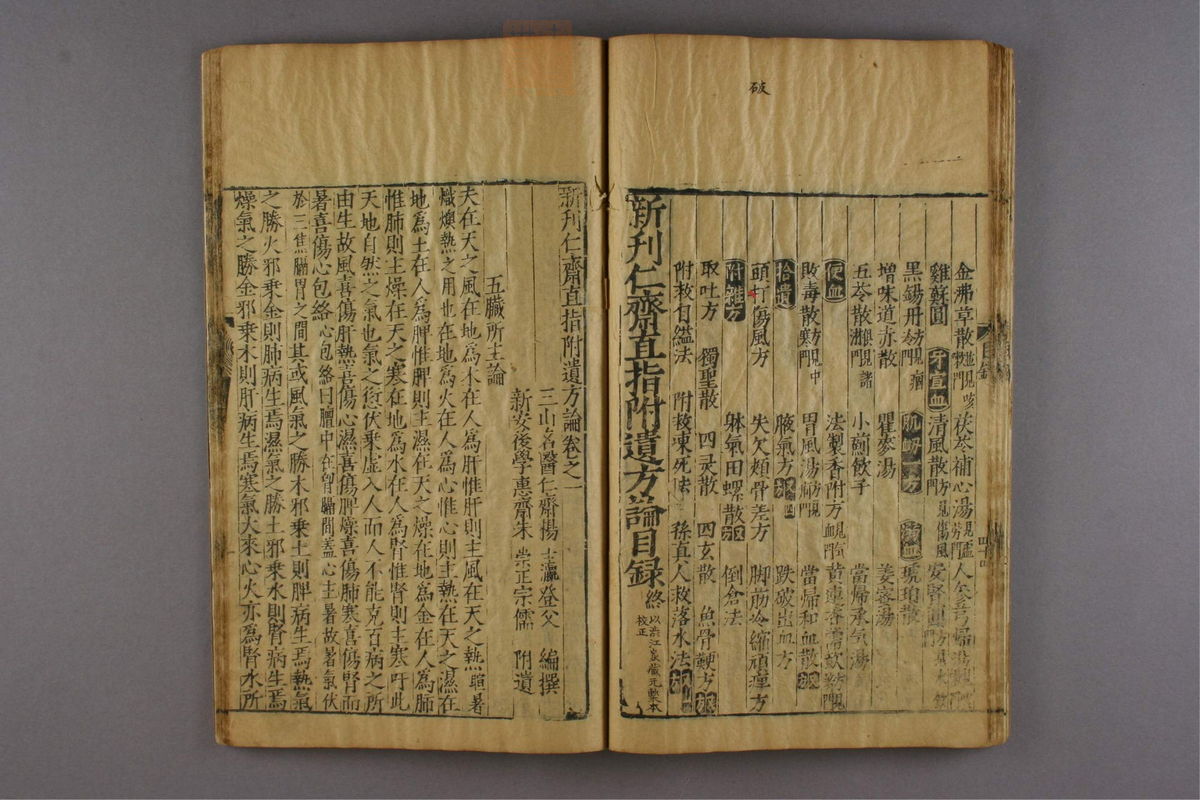 破
金沸草散 茯苓補心湯
雞蘇圓 牙宣血 清風散
黑錫丹 琥珀散
增味道赤散 瞿麥湯
五苓散 小薊飲子 當帰承气湯
便血 法製香附方
敗毒散 胃風湯 當帰和血散
拾遺 腋氣方 跌破出血方
頭打傷風方 失欠頰骨差方 脚筋冷縮頑痺方
附雜方 躰氣田螺散 倒倉法
取吐方 獨聖散 四灵散 四玄散 魚骨鯁方
附救自縊法 附救凍死法 孫真人救落水法
新刊仁齋直指附遺方論目録 終
校正
新刊仁齋直指附遺方論卷之一
三山名醫仁齋楊 士瀛登父 編撰
新安後學惠齋朱 崇正宗儒 附遺
五臟所主論
夫在天之風在地為木在人為肝惟肝則主風在天之熱暄暑
熾燠熱之用也在地為火在人為心惟心則主熱在天之濕在
地為土在人為脾惟脾則主濕在天之燥在地為金在人為肺
惟肺則主燥在天之寒在地為水在人為腎惟腎則主寒吁此
天地自然之氣也氣之愆伏乗虛入人而人不能克百病之所
由生故風喜傷肝熱喜傷心濕喜傷脾燥喜傷肺寒喜傷腎而
暑喜傷心包絡心包絡曰膻中在胷膈間蓋心主暑故暑氣伏
於三焦膈胃之間其或風氣之勝木邪乗土則脾病生焉熱氣
之勝火邪乗金則肺病生焉濕氣之勝土邪乗水則腎病生焉
燥氣之勝金邪乗木則肝病生焉寒氣大來心火亦為腎水所